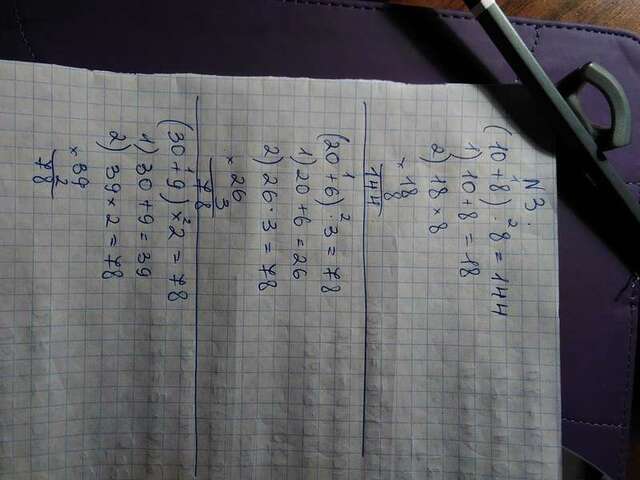 N 3.
(10 + 8) · 8 = 144
1) 10 + 8 = 18
2) 18 × 8
× 18
8
144
(20 + 6) · 3 = 78
1) 20 + 6 = 26
2) 26 · 3 = 78
× 26
3
78
(30 + 9) × 2 = 78
1) 30 + 9 = 39
2) 39 × 2 = 78
× 39
2
78